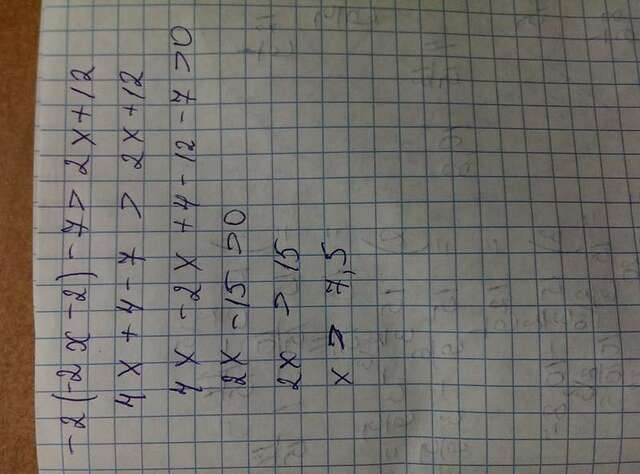 -2(-2x-2)-7>2x+12
4x+4-7>2x+12
4x-2x+4-12-7>0
2x-15>0
2x>15
x>7,5